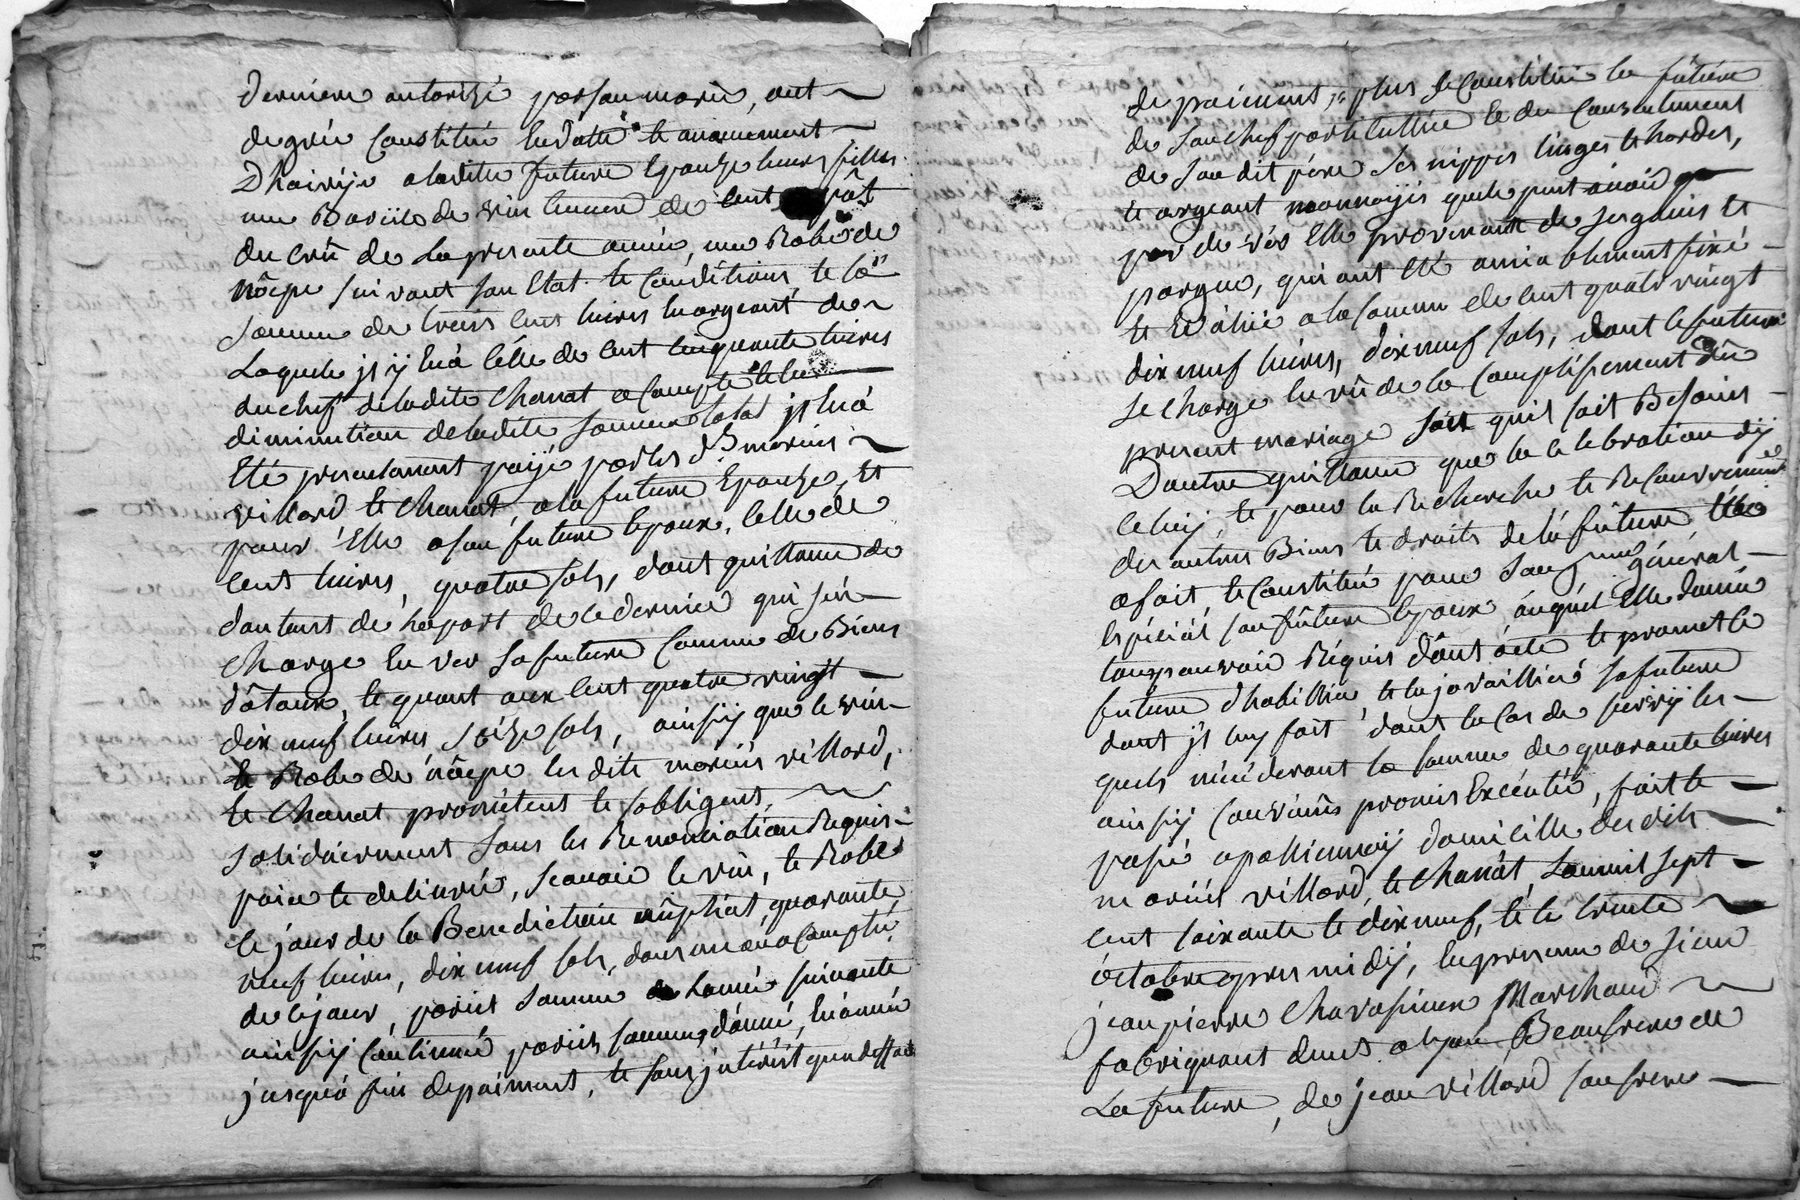 derniere autorizé par son marié, ont
de gréé Constitué en dotte et avancement
D'hoirije a ladite future Epouze leurs filles
une Barille de vin tenure de cent pôt
du crû de la presente année, une Robe de
nôçe suivant son Etat et Conditions, et la
somme de trois cent livres en argeant de
Laquele jl ÿ en a celle de cent cinquante livres
du chef de ladite Chanat a Compte et en
diminution de ladite somme total jl en a
Eté presentement paÿé par les d.s mariés
villard et Chanat, a la future Epouze, et
pour Elle a son future Epoux, celle de
cent livres, quatre sols, dont quittance de
dautant de la part de ce dernier qui s'en
charge En ver sa future Comme de Biens
dôtaux, et quant aux cent quatre vingt
dix neuf livres seize sols, ainsÿ que le vin
et Robe de nôçe les dits mariés villard,
et Chanat promettent et s'obligent,
solidairement sous les Renonciation Requis
paié et delivré, scavoir le vin, et Robe
le jour de la Benediction nûptial, quarante
neuf livres, dix neuf sols, dans un an a Compté
de ce jour, pareil somme lannée suivante
ainsÿ Continué pareils sommes d'année, En année
jusqu'à fin de paiment, et sans jnterêst qu'a deffaut
de paiement, plus se Constitue la future
de son chef particullier et du Consentement
de son dit pére ses nippes linges et hardes,
et argeant monnoÿés quele peut avoir
par de vér Elle provenant de ses gains et
pargne, qui ont Eté amiablement fixé
et Evalué a la somme de cent quatre vingt
dix neuf livres, dix neuf sols, dont le future
se charge en vû de la Complissement du
present mariage sans quil soit Besoins
Dautre quittance que de la celebration dÿ
celuÿ, et pour la Recherche et Recouvrement
des autres Biens et droits de la future Elle
a fait et Constitué pour son général
Espécial son future Epoux, auquel Elle donne
tous pouvoir Réquis dônt acte et promet le
future d'habillier et enjovaillier sa future
dont jl luÿ fait dont En Cas de survÿ les
quels n'éxcéderont la somme de quarante livres
ainsÿ Convenus promis Exécuté, fait et
passé a domicille des dits
mariés villard, et Chanat Lan mil sept
cent soixante et dix neuf, et le trente
octobre apres midÿ, En presence de sieur
jean pierre Chavassieux Marchand
fabriquant Beaufrere de
La future, de jean villard son frere